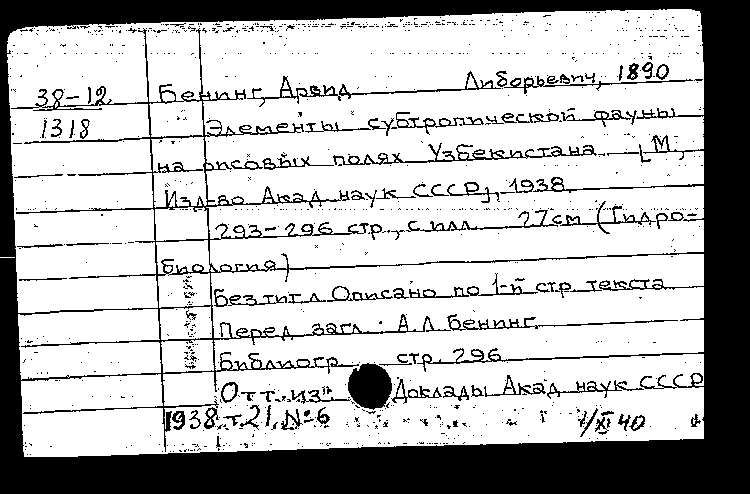 38-12. Бенинг, Арвид Либорьевич, 1890
1318 Элементы субтропической фауны
на рисовых полях Узбекистана [М.,
Изд-во Акад. наук СССР], 1938.
293-296 стр., с илл. 27см (Гидро-
биология)
Без тит. л. Описано по 1-й стр. текста.
Перед загл.: А.Л. Бенинг.
Библиогр. стр. 296
Отт. из: "Доклады Акад. наук СССР
1938. т. 21. №6 1/XI 40